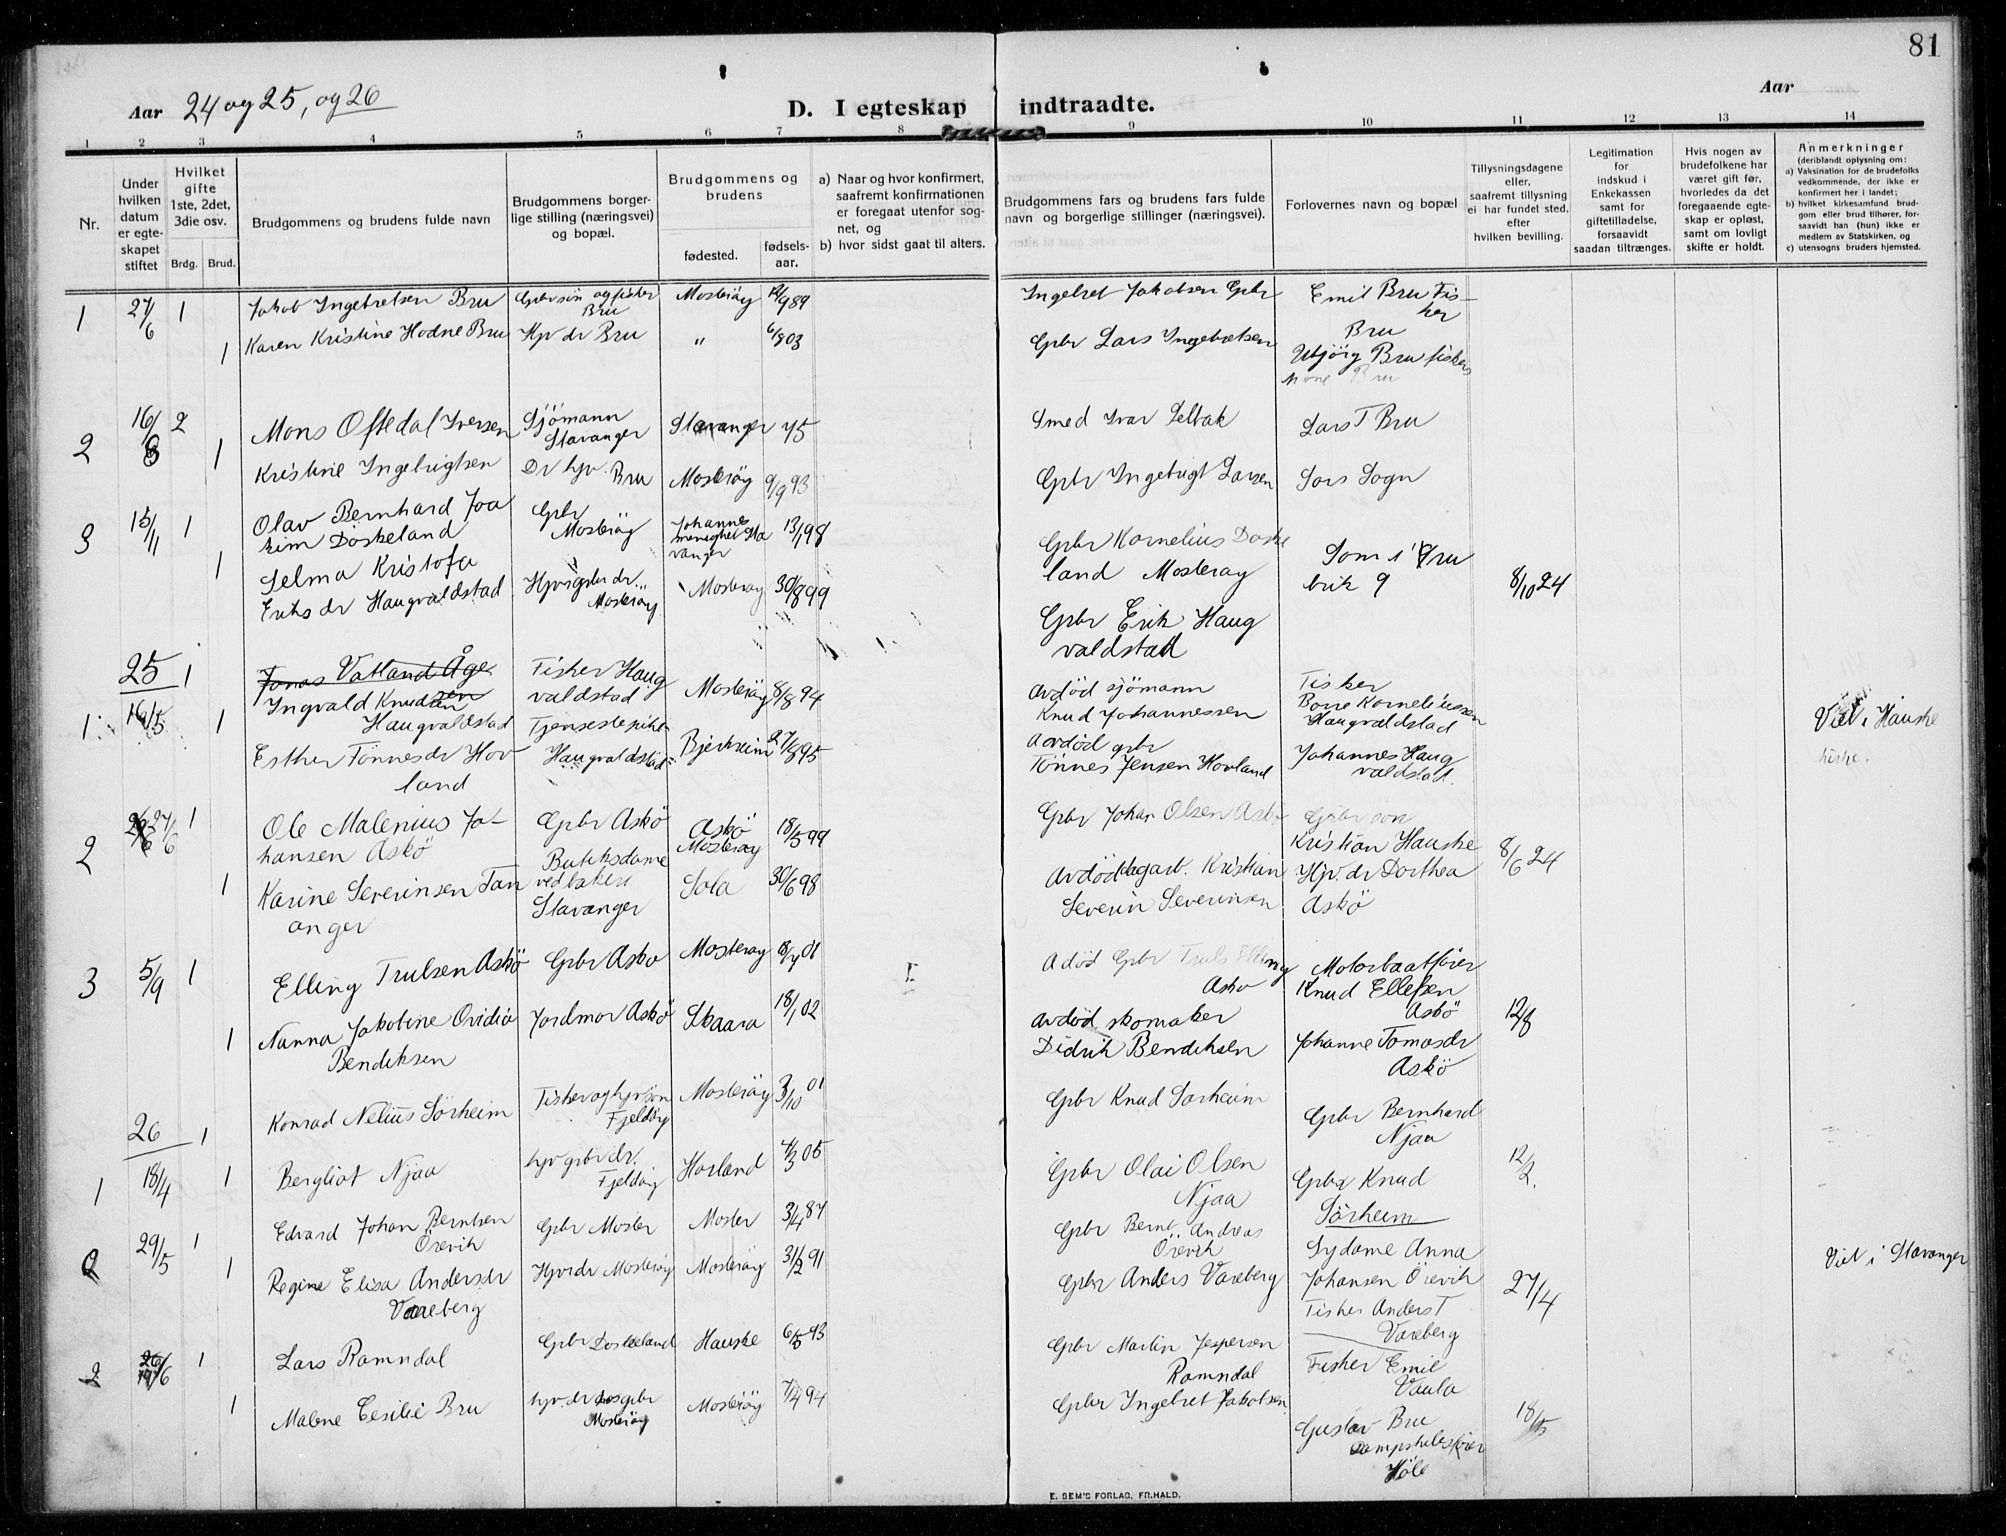 81
Aar 24 og 25, og 26
D. I egteskap indtraadte.
Aar
1 2 3 4 5 6 7 8 9 10 11 12 13 14
Nr.
Under hvilken datum er egteskapet stiftet
Hvilket gifte 1ste, 2det, 3die osv.
Brdg. Brud.
Brudgommens og brudens fulde navn
Brudgommens borgerlige stilling (næringsvei) og bopæl.
Brudgommens og brudens
fødested.
fødselsaar.
a) Naar og hvor konfirmert, saafremt konfirmationen er foregaat utenfor sognet, og
b) hvor sidst gaat til alters.
Brudgommens fars og brudens fars fulde navn og borgerlige stillinger (næringsvei).
Forlovernes navn og bopæl
Tillysningsdagene eller, saafremt tillysning ei har fundet sted, efter hvilken bevilling.
Legitimation for indskud i Enkekassen samt for giftetilladelse, forsaavidt saadan tiltrænges.
Hvis nogen av brudefolkene har været gift før, hvorledes da det foregaaende egteskap er opløst, samt om lovligt skifte er holdt.
Anmerkninger
(deriblandt oplysning om:
a) Vaksination for de brudefolks vedkommende, der ikke er konfirmert her i landet;
b) hvilket kirkesamfund brudgom eller brud tilhører, forsaavidt han (hun) ikke er medlem av Statskirken, og
c) utensogns bruders hjemsted.
1 27/6 1 Jakob Ingebretsen Bru Gbr søn og fisker Bru Mosterøy 12/9 89 Ingebret Jakobsen Gbr Emil Bru Fisker Bru
1 Karen Kristine Hodne Bru Hjv dr Bru " 6/8 03 Gbr Lars Ingebretsen Bru fiskers kone Bru
2 16/8 2 Mons Oftedal Iversen Sjømann Stavanger Stavanger 75 Smed Ivar Seltak Lars T Bru
1 Kristine Ingebrigtsen Dr hjv. Bru Mosterøy 9/9 93 Gbr Ingebrigt Larsen Lars Sogn
3 15/11 1 Olav Bernhard Joakim Døskeland Gbr Mosterøy Johannes menighet Stavanger 13/1 98 Gbr Kornelius Døskeland Mosterøy Som i rubrik 9 8/10 24
1 Selma Kristofa Eriks dr Haugvaldstad Hjv gbr dr. Mosterøy Mosterøy 30/8 99 Gbr Erik Haugvaldstad
25
1 16/5 1 Jonas Vatland Åge Ingvald Knudsen Haugvaldstad Fisker Haugvaldstad Mosterøy 8/8 94 Avdød sjømann Knud Johannessen Fisker Bore Korneliussen Haugvaldstad Viet i Hauske kirke.
1 Esther Tønnesdr Hovland Tjenestepike Haugvaldstad Bjerkreim 27/8 95 Avdød gbr Tønnes Jensen Hovland Johannes Haugvaldstad
2 27/6 1 Ole Malenius Johansen Askø Gbr Askø Askø Mosterøy 18/5 99 Gbr Johan Olsen Askø Gbr søn Kristian Hauske 8/6 24
1 Karine Severinsen Tananger Butiksdame ved bakeri Stavanger Sola 30/6 98 Avdød dagarb. Kristian Severin Severinsen Hjv. dr Dorthea Askø
3 5/9 1 Elling Trulsen Askø Gbr Askø Mosterøy 8/7 01 Adød Gbr Truls Elling Askø Motorbaatfører Knud Ellefsen Askø 12/8
1 Nanna Jakobine Ovidia Bendiksen Jordmor Askø Skaara 18/1 02 Avdød skomaker Didrik Bendiksen Johanne Tomasdr Askø
26
1 18/4 1 Konrad Nelius Sørheim Fisker og hjv søn Fjeldøy Mosterøy 3/10 01 Gbr Knud Sørheim Gbr Bernhard Njaa 12/2.
1 Bergliot Njaa hjv gbr dr. Fjeldøy Hovland 4/3 05 Gbr Olai Olsen Njaa Gbr Knud Sørheim
2 29/5 1 Edvard Johan Berntsen Örevik Gbr Moster Moster 3/4 87 Gbr Bernt Andreas Örevik Sydame Anna Johansen Örevik 27/4 Viet i Stavanger
1 Regine Elisa Andersdr Vareberg Hjv dr Mosterøy Mosterøy 31/2 91 Gbr Anders Vareberg Fisker Anders T Vareberg
2 26/6 1 Lars Ramndal Gbr Døskeland Hauske 6/5 93 Gbr Martin Jespersen Ramndal Fisker Emil Vaula 18/5
1 Malene Cesilie Bru hjv. dr hos gbr Mosterøy Mosterøy 7/4 94 Gbr Ingebret Jakobsen Gustav Bru dampskibsfører Høle
E. SEM'S FORLAG, FR.HALD.